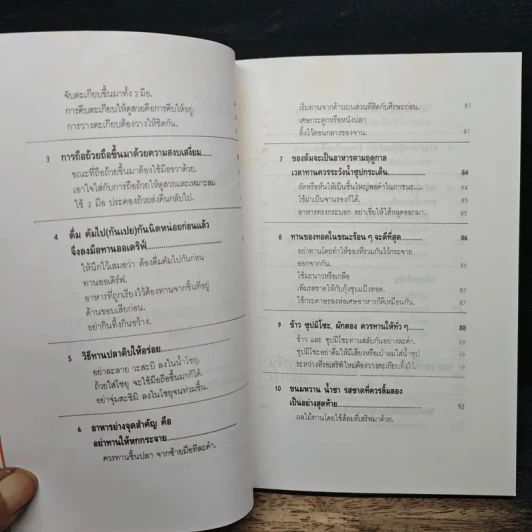 จับตะเกียบขึ้นมาทั้ง 2 มือ.
การคีบตะเกียบให้ดูสวยคือการคีบให้อยู่.
การวางตะเกียบต้องวางให้ชิดกัน.
3 การถือถ้วยถือขึ้นมาด้วยความสงบเสงี่ยม
ขณะที่ถือถ้วยขึ้นมาต้องใช้มือขวาด้วย.
เอาใจใส่กับการถือถ้วยให้ดูสวยและเหมาะสม
ใช้ 2 มือ ประคองถ้วยส่งคืนกลับไป.
4 ดื่ม ดัมไป(กันเปย)กันนิดหน่อยก่อนแล้ว
จึงลงมือทานออเดิร์ฟ
ให้นึกไว้เสมอว่า ต้องดื่มดัมไปกันก่อน
ทานออเดิร์ฟ.
อาหารที่ถูกเรียงไว้ต้องทานจากชิ้นที่อยู่
ด้านขอบเสียก่อน.
อย่ากินทิ้งกินขว้าง.
5 วิธีทานปลาดิบให้อร่อย
อย่าละลาย วะสะบิ ลงในโชยุ.
ถ้วยใส่โชยุ จะใช้มือถือขึ้นมาก็ได้.
อย่าจุ่มสะชิมิ ลงในโชยุจนท่วมชิ้น.
6 อาหารย่างจุดสำคัญ คือ
อย่าทานให้หกกระจาย
ควรทานชิ้นปลา จากซ้ายมือทีละคำ.
เริ่มทานจากด้านบนส่วนที่ติดกับศีรษะก่อน. 81
เศษกระดูกหรือหนังปลา
ทิ้งไว้ตอนกลางของจาน. 81
7 ของต้มจะเป็นอาหารตามฤดูกาล
เวลาทานควรระวังน้ำซุปกระเด็น 84
ตัดหรือหั่นให้เป็นชิ้นใหญ่พอคำในภาชนะ. 84
ใช้ฝาเป็นจานรองก็ได้. 85
อาหารทรงกระบอก อย่าเขี่ยให้ไส้หลุดออกมา. 85
8 ทานของทอดในขณะร้อน ๆ จะดีที่สุด 86
อย่าทานโดยทำให้ของที่รวมกันไว้กระจาย
ออกจากกัน. 86
ใช้มะนาวหรือเกลือ
เพิ่มรสชาติให้กับกุ้งชุบแป้งทอด. 86
ใช้กระดาษรองห่อเศษอาหารก็ดีเหมือนกัน. 87
9 ข้าว ซุปมิโซะ, ผักดอง ควรทานให้ทั่ว ๆ 88
ข้าว และ ซุปมิโซะทานสลับกันอย่างละคำ. 88
ซุปมิโซะอย่าดื่มให้มีเสียงหรือเป่าลมใส่น้ำซุป
10 ขนมหวาน น้ำชา รสชาติที่ควรลิ้มลอง
เป็นอย่างสุดท้าย 92
ผลไม้ทานโดยใช้ส้อมที่เสริฟมาด้วย.